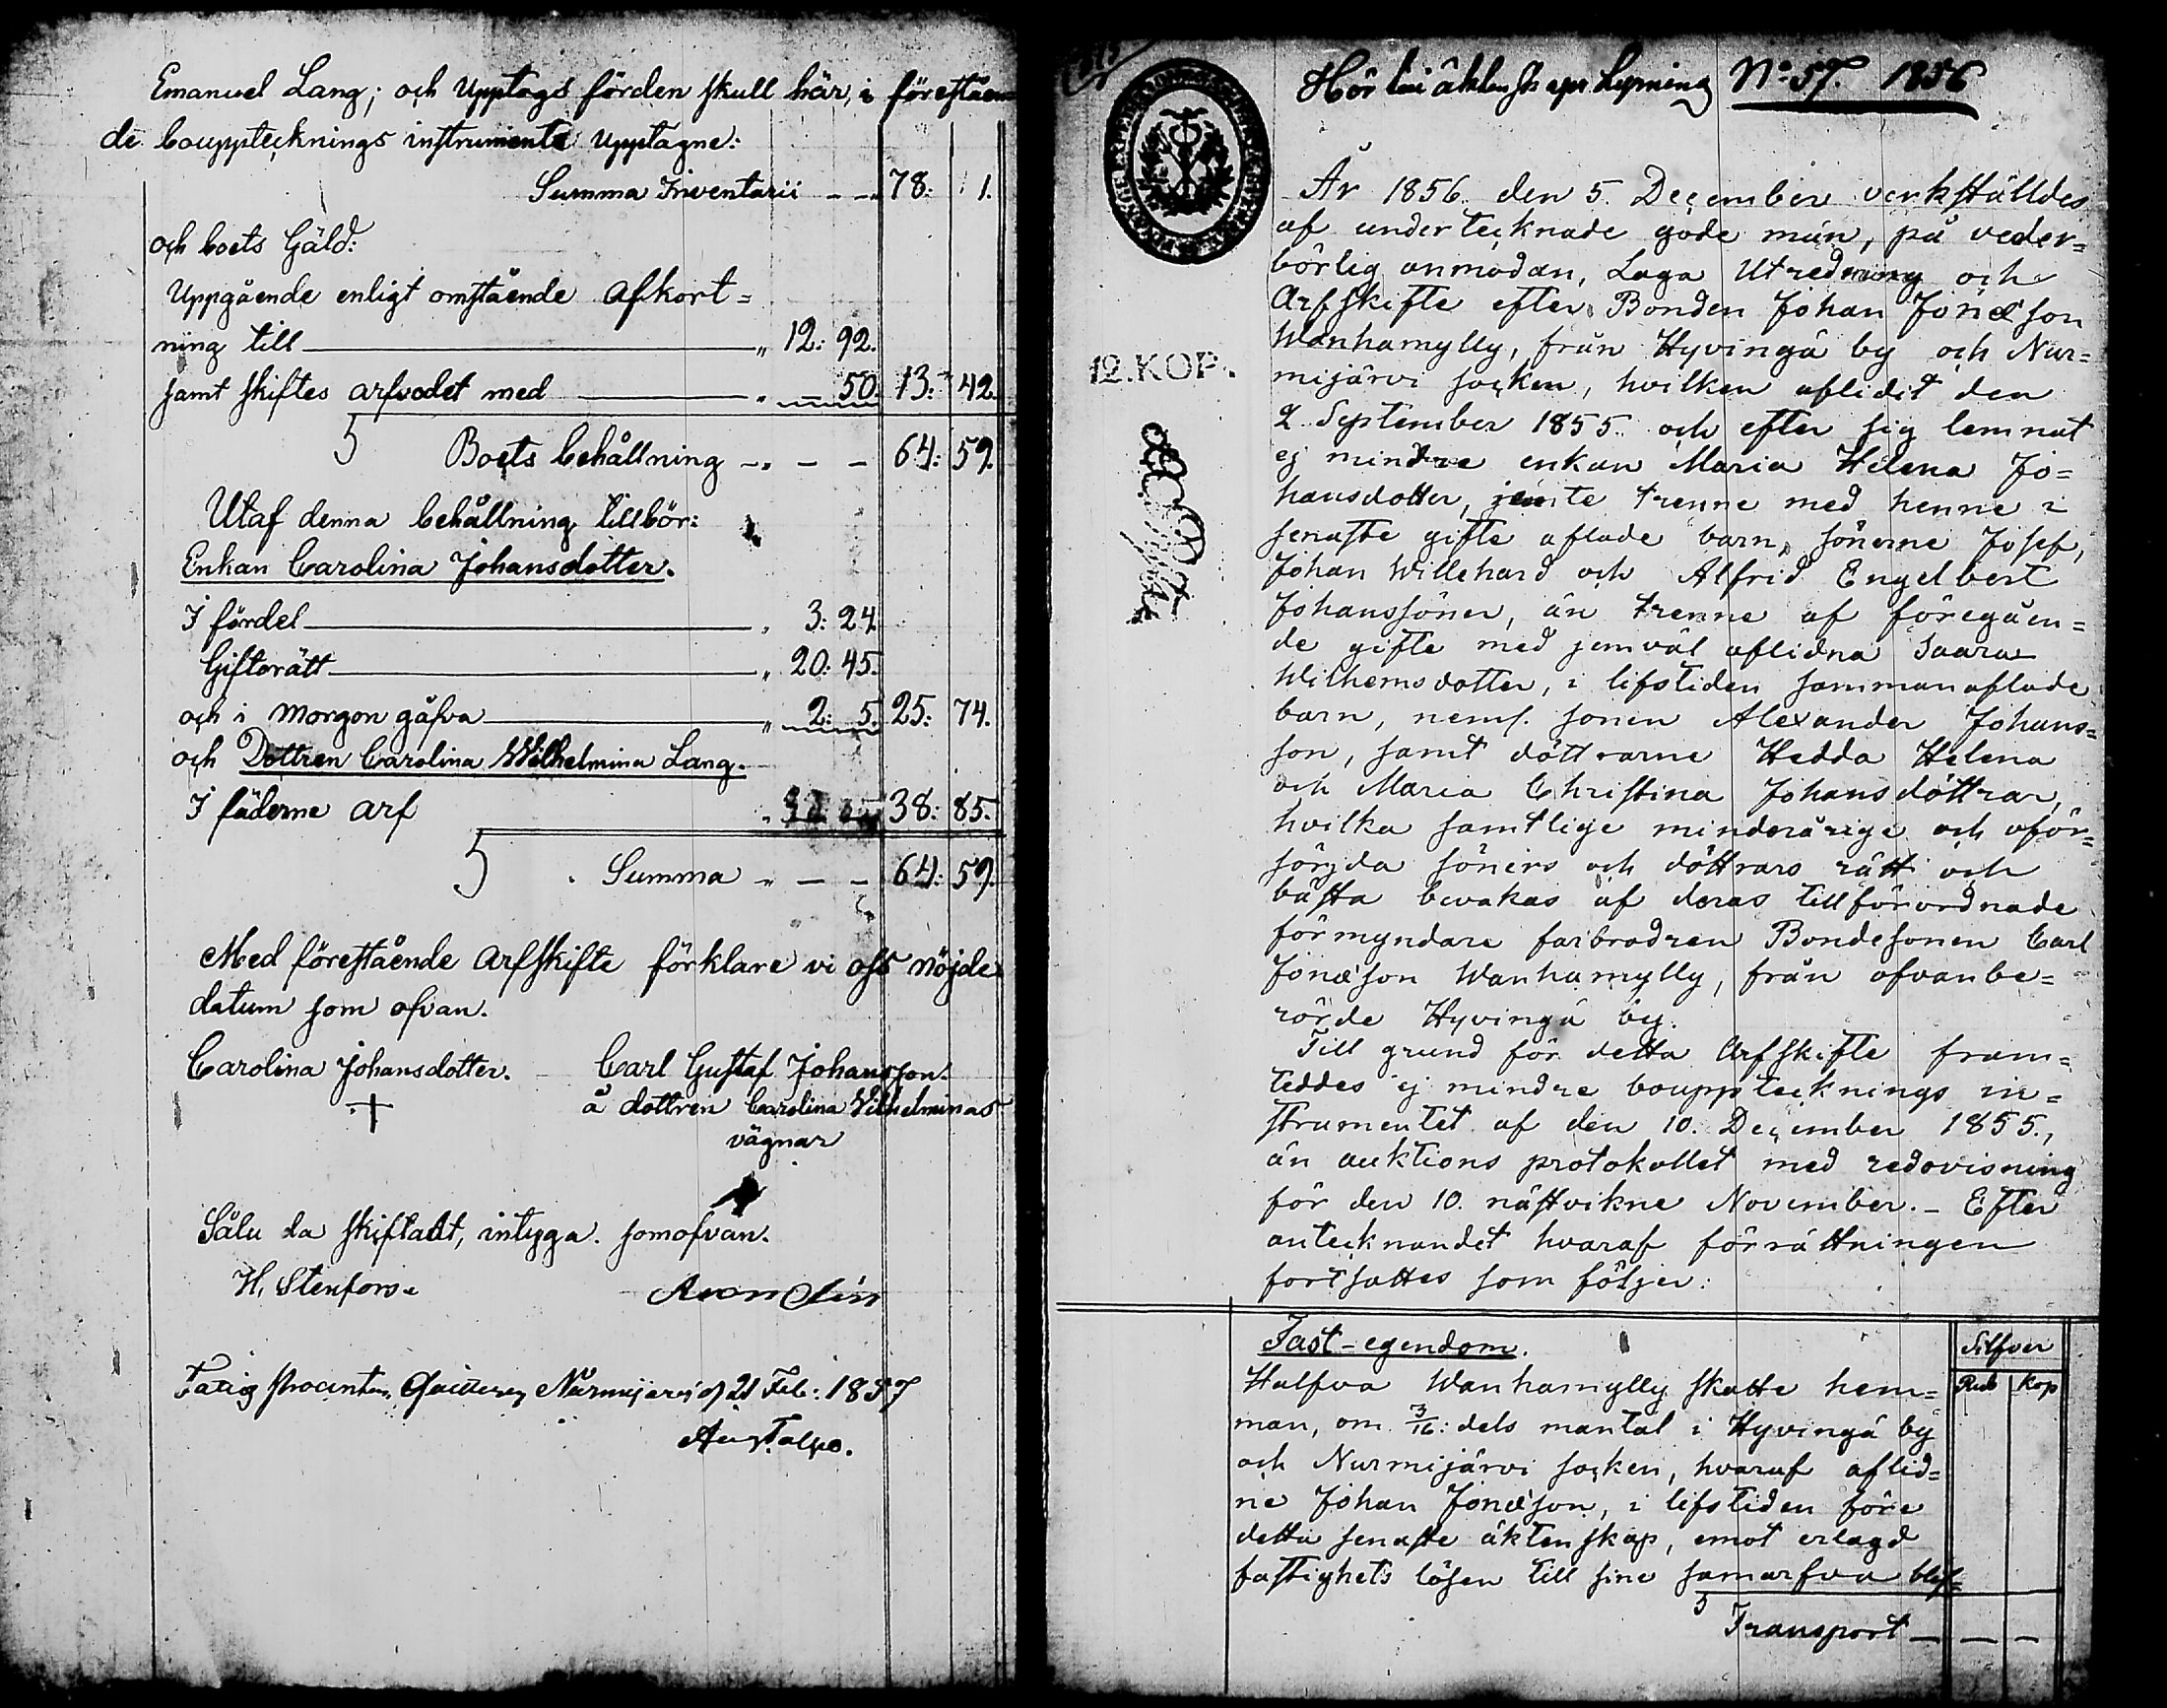 Emanuel Lang; och Upptags förden skull här, i föreståen
de bouppteknings instrumente Upptagne:
Summa Inventarii - - 78: 1.
och boets Gäld:
Uppgående enligt omstående Afkort=
ning till " 12: 92.
samt skiftes arfvodet med " 50. 13: 42.
Boets behållning - - - 64: 59.
Utaf denna behållning tillhör:
Enkan Carolina Johansdotter.
I fördel " 3: 24.
Giftorätt " 20: 45.
och i Morgon gåfva " 2: 5. 25: 74.
och Dottren Carolina Wilhelmina Lang.
I fäderne arf 38: 85.
Summa " - - 64: 59.
Med förestående Arfskifte förklare vi oss nöjde
datum som ofvan.
Carolina Johansdotter. Carl Gustaf Johansson.
å dottren Carolina Wilhelminas
vägnar
Sålu da skiftadt, intyga. somofvan.
H. Stenfors.
Nurmijervi d 21 Feb: 1857
No 57. 1856
12.KOP.
År 1856 den 5. December verkställdes
af undertecknade gode män, på veder=
börlig anmodan, Laga Utredning och
Arfskifte efter Bonden Johan Jonæson
Wanhamylly, från Hyvingä by och Nur=
mijärvi socken, hvilken aflidit den
2 September 1855. och efter sig lemnat
ej mindre enkan Maria Helena Jo=
hansdotter, jemte trenne med henne i
senaste gifte aflade barn, sönerne Josef,
Johan Willehard och Alfrid Engelbert
Johanssöner, än trenne af föregåen=
de gifte med jemväl aflidna Saara
Wilhemsdotter, i lifstiden sammanaflade
barn, neml. sonen Alexander Johans=
son, samt döttrarne Hedda Helena
och Maria Christina Johansdöttrar,
hvilka samtlige minderårige och oför=
sörjda söners och döttrars rätt och
bästa bevakas af deras tillförordnade
förmyndare farbrodren Bondesonen Carl
Jonæson Wanhamylly, från ofvanbe=
rörde Hyvingä by.
Till grund för detta Arfskifte fram=
teddes ej mindre bouppteknings in=
strumentet af den 10. December 1855.,
än auktions protokollet med redovisning
för den 10. nästvikne November. - Efter
antecknandet hvaraf förrättningen
fortsattes som följer:
Fast-egendom.
Silfver
Rub Kop
Halfva Wanhamylly skatte hem=
man, om 3/16: dels mantal i Hyvingä by
och Nurmijärvi socken, hvaraf aflid=
ne Johan Jonæson, i lifstiden före
detta senaste äktenskap, emot erlagd
fastighets lösen till sine samarfva blif=
Transport - - -